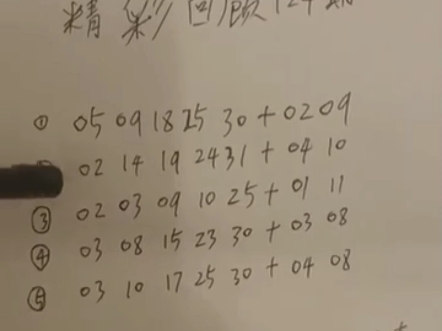 精彩回顾124期
① 05 09 18 25 30 + 02 09
02 14 19 24 31 + 04 10
③ 02 03 09 10 25 + 01 11
④ 03 08 15 23 30 + 03 08
⑤ 03 10 17 25 30 + 04 08